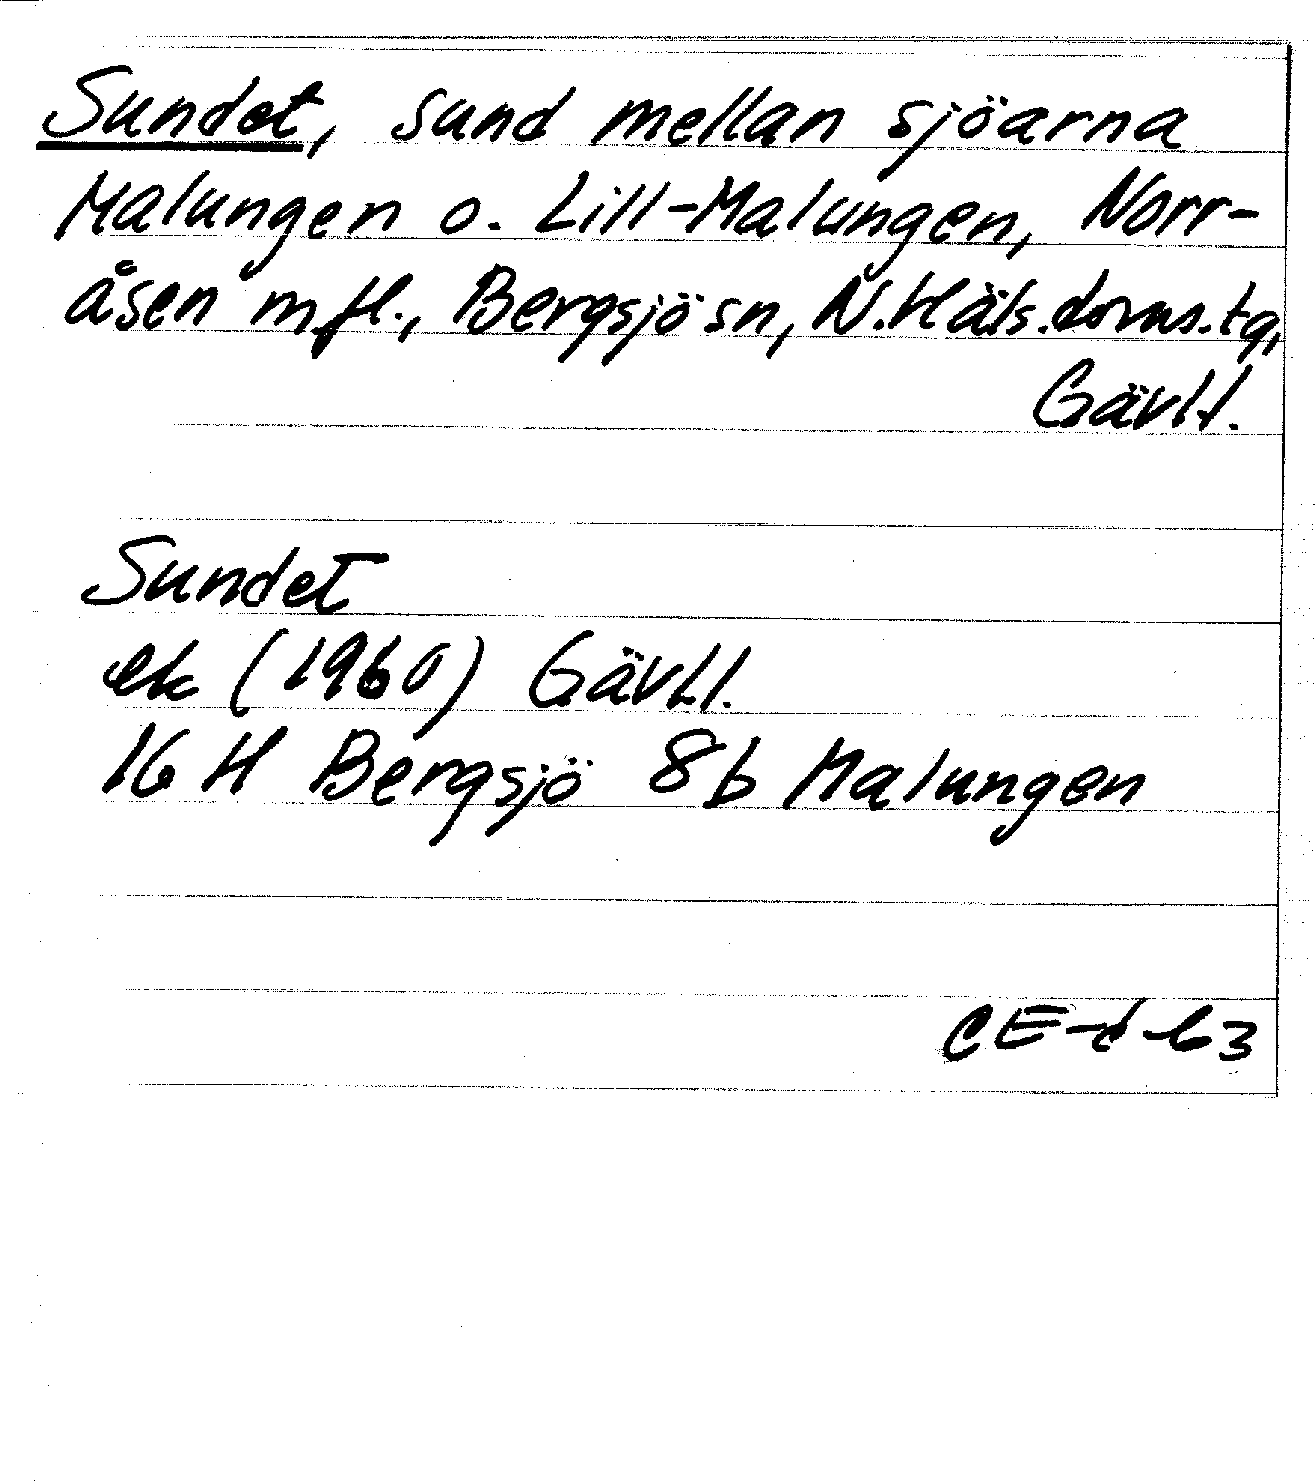 Sundet, sund mellan sjöarna
Malungen o. Lill-Malungen, Norr-
åsen m.fl., Bergsjö sn, N.Häls.doms.tg,
Gävl.l.
Sundet
ek (1960) Gävl.l.
16 H Bergsjö 8b Malungen
CE-d-63